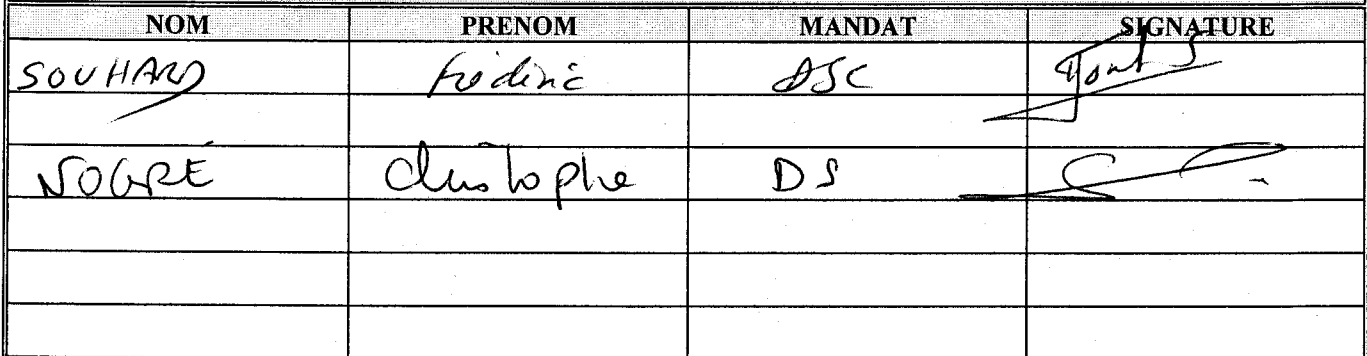 NOM PRENOM MANDAT SIGNATURE
SOUHARD Frédéric DSC
NOGRÉ Christophe DS